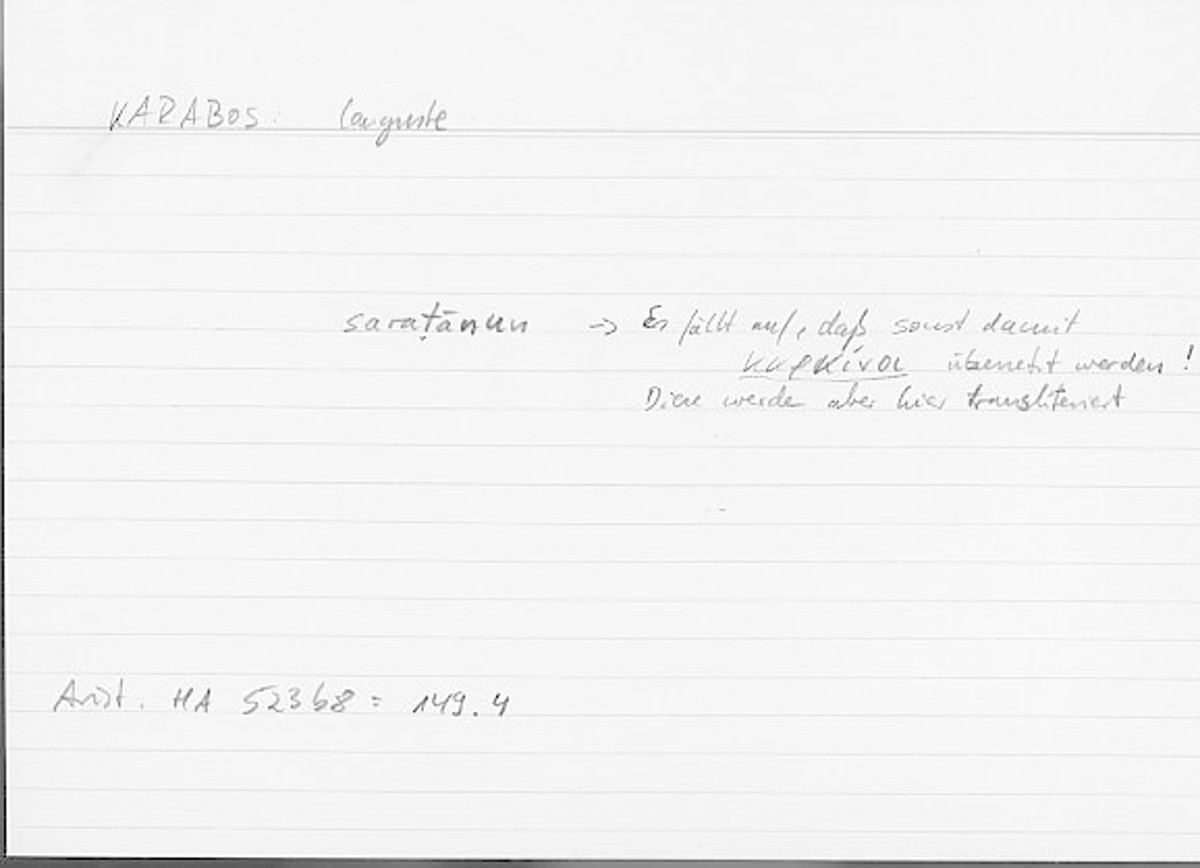 KARABOS: Languste
saraṭānun → Es fällt auf, daß sonst damit
καρκίνοι übersetzt werden!
Diese werde aber hier transliteriert
Arist. HA 523b8 = 149.4